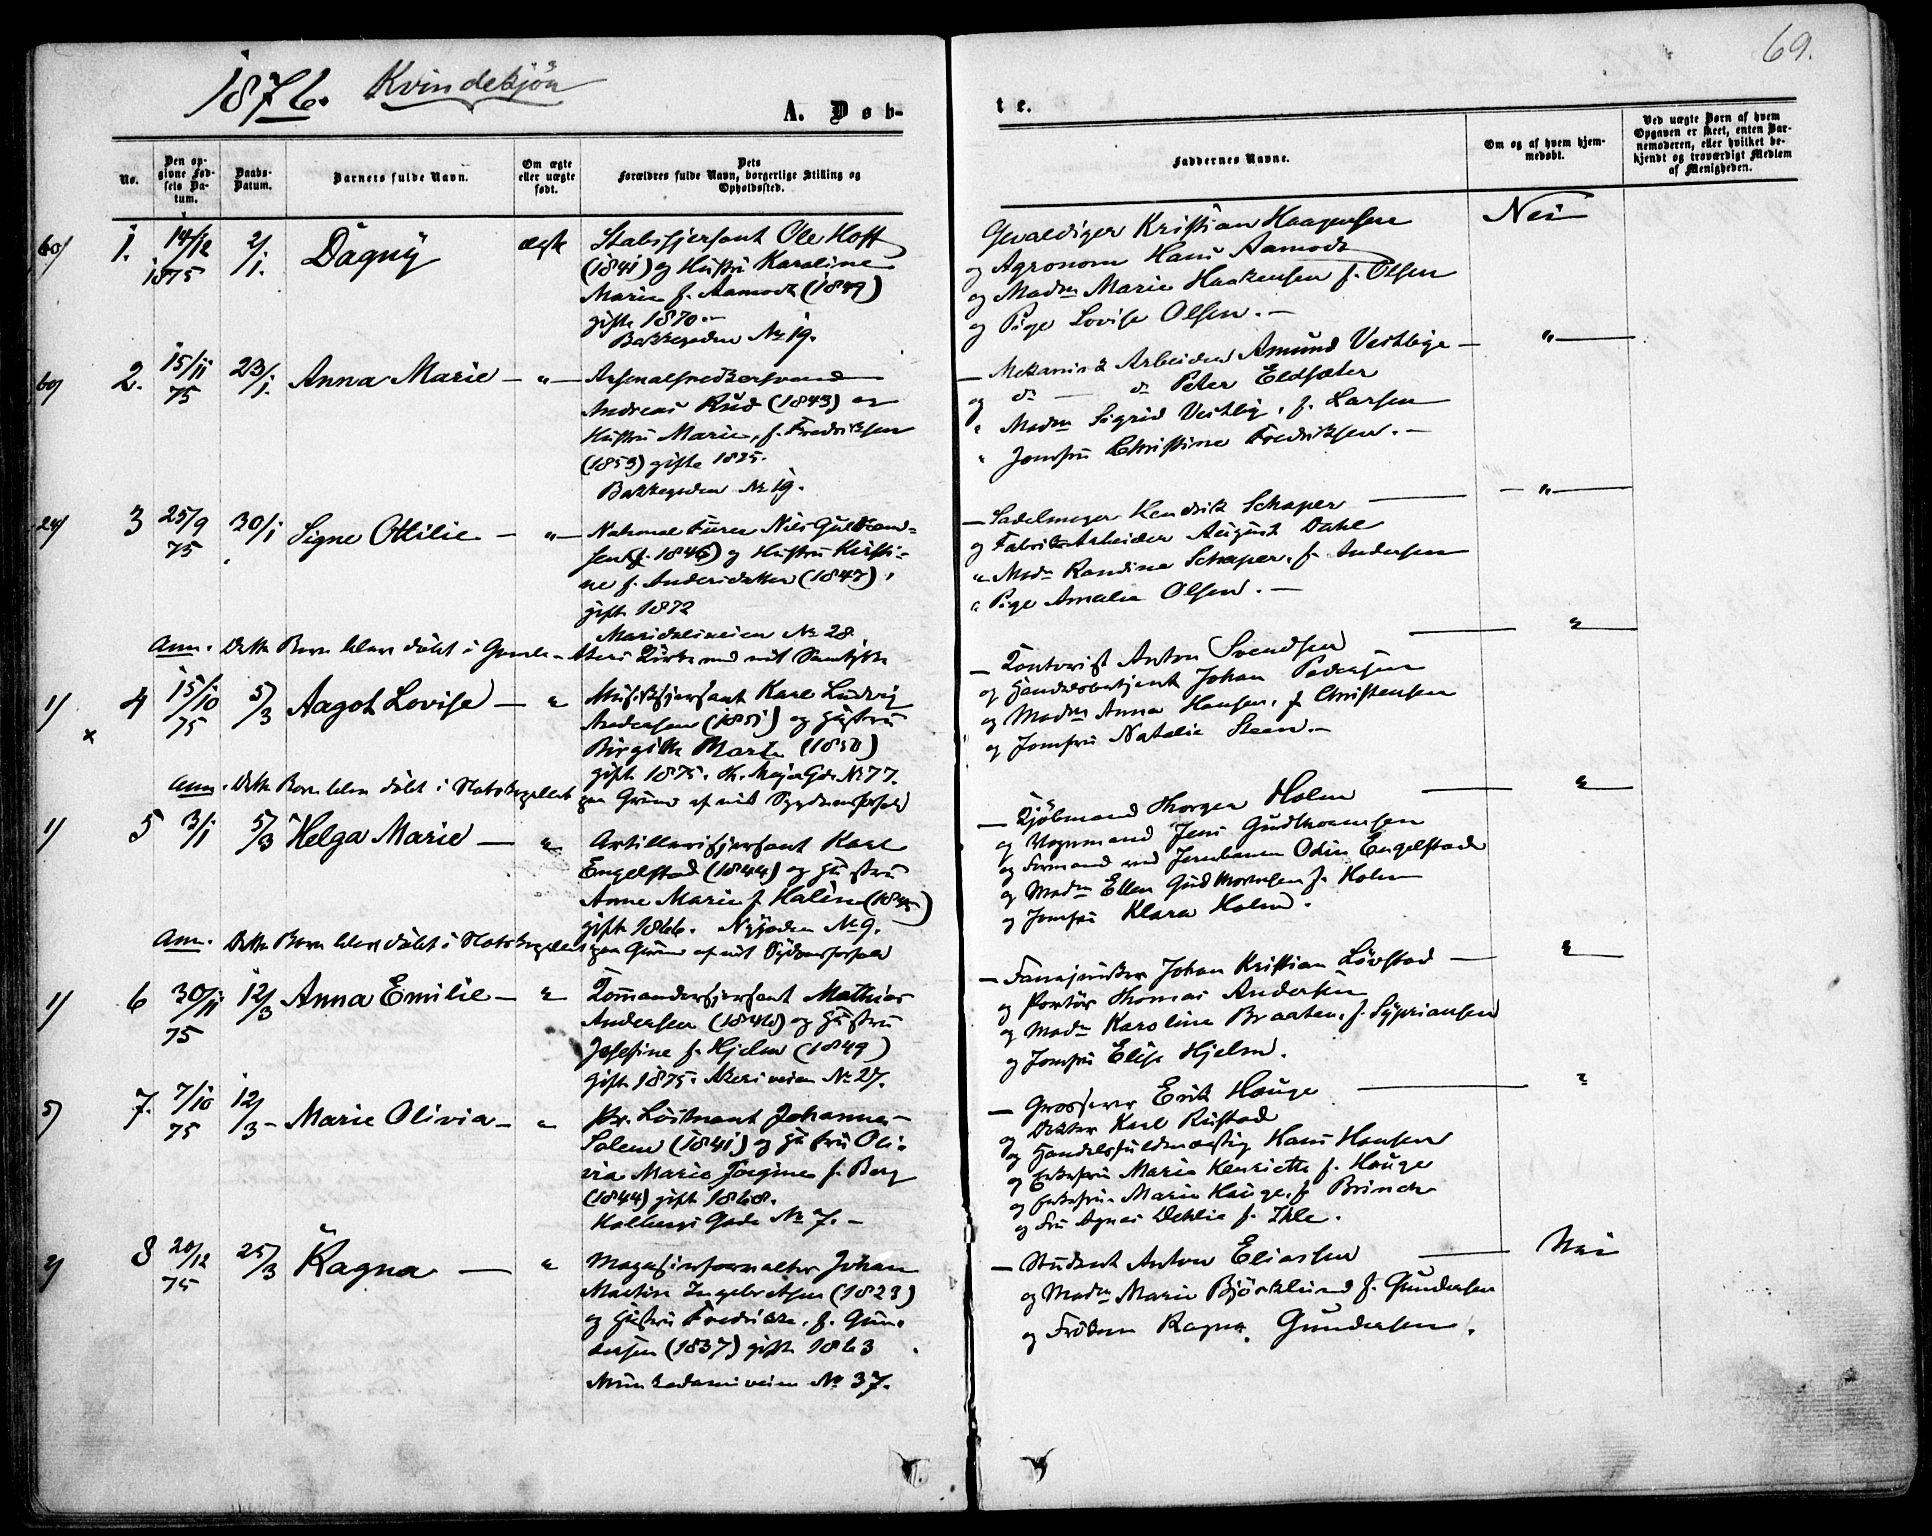 69.
1876. Kvindekjön
A. Døb-
te.
No.
Den op-
givne Fød-
sels Da-
tum.
Daabs-
Datum.
Barnets fulde Navn.
Om ægte
eller uægte
født.
Dets
Forældres fulde Navn, borgerlige Stilling og
Opholdssted.
Faddernes Navne.
Om og af hvem hjem-
medøbt.
Ved uægte Børn af hvem
Opgaven er skeet, enten Bar-
nemoderen, eller hvilket be-
kjendt og troværdigt Medlem
af Menigheden.
60/ 1. 14/12 1875 2/1. Dagny ægte Stabssjersant Ole Hoff
(1841) og Hustru Karoline
Marie f. Aamodt (1849)
gifte 1870.—
Bakkegaden No 19.
Gevaldiger Kristian Haagensen Nei
og Agronom Hans Aamodt
og Madm Marie Haakensen f. Olsen
og Pige Lovise Olsen.—
60/ 2. 15/11 75 23/1. Anna Marie — „ — Arsenalsnedkersvend
Andreas Rud (1843) og
Hustru Marie, f. Fredriksen
(1853) gifte 1875.
Bakkegaden No 19.
— Mekanisk Arbeider Amund Vestbye — „
og do — do Peter Eldsæter
" Madm Sigrid Vestby, f. Larsen
" Jomfru Christine Fredriksen.—
24/ 3 25/9 75 30/1 Signe Othilie — „ — National Furer Nils Gulbrand-
sen (f. 1846) og Hustru Kirsti-
ne f. Andersdatter (1847),
gifte 1872
Maridalsveien No 28.
— Sadelmager Hendrik Schaper — „ —
og FabrikArbeider August Dahl
" Madm Randine Schaper, f. Andersen
" Pige Amalie Olsen.—
Anm. Dette Barn blev døbt i Gamle-Akers Kirke med mit Samtykke
1/ × 4 15/10 75 5/3 Aagot Lovise — " Musiksjersant Karl Ludvig
Andersen (1851) og Hustru
Birgitte Marie (1850)
gift 1875. Th. Mejers Gd. No 77.
— Kontorist Anton Svendsen — "
og Handelsbetjent Johan Pedersen
og Madm Anna Hansen, f. Christensen
og Jomfru Natalie Steen.—
Anm. Dette Barn blev døbt i Slotskapellet paa Grund af mit Sygdomsforfald
1/ 5 3/1 5/3 Helga Marie — " Artillerisjersant Karl
Engelstad (1844) og Hustru
Anne Marie f. Halin (1845)
gift 1866. Nygaden No 9.
— Kjöbmand Thorger Holm — "
og Vognmand Jens Gudthormsen
og Formand ved Jernbanen Odin Engelstad
og Madm Ellen Gudthormsen f. Holm
og Jomfru Klara Holm.
Anm. Dette Barn blev døbt i Slotskapellet paa Grund af mit Sygdomsforfald
1/ 6 30/11 75 12/3 Anna Emilie — " Kommandersjersant Mathias
Andersen (1846) og Hustru
Josefine f. Hjelm (1849)
gift 1875. Akersveien No 27.
— Fanejunker Johan Kristian Lövstad — "
og Portör Thomas Andersen
og Madm Karoline Braaten, f. Sypriansen
og Jomfru Elise Hjelm.
5/ 7. 7/10 75 12/3 — Marie Olivia — " Pr. Löitnant Johannes
Solem (1841) og Hustru Oli-
via Marie Jörgine f. Berg
(1844) gift 1868.
Holbergs Gade No 7.—
— Grosserer Erik Hauge — "
og Doktor Karl Rustad
og Handelsfuldmægtig Hans Hansen
og Enkefru Marie Henriette f. Hauge
og Enkefru Marie Hauge, f. Brinch
og Fru Agnes Dehlie f. Ihle.
2/ 8 20/12 75 25/3 Ragna — " Magasinforvalter Johan
Martin Ingebretsen (1823)
og Hustru Fredrikke, f. Gun-
dersen (1837) gift 1863
Munkedamsveien No 37.
— Student Anton Eliassen — Nei
og Madm Marie Björklund f. Gundersen
og Fröken Ragna Gundersen.